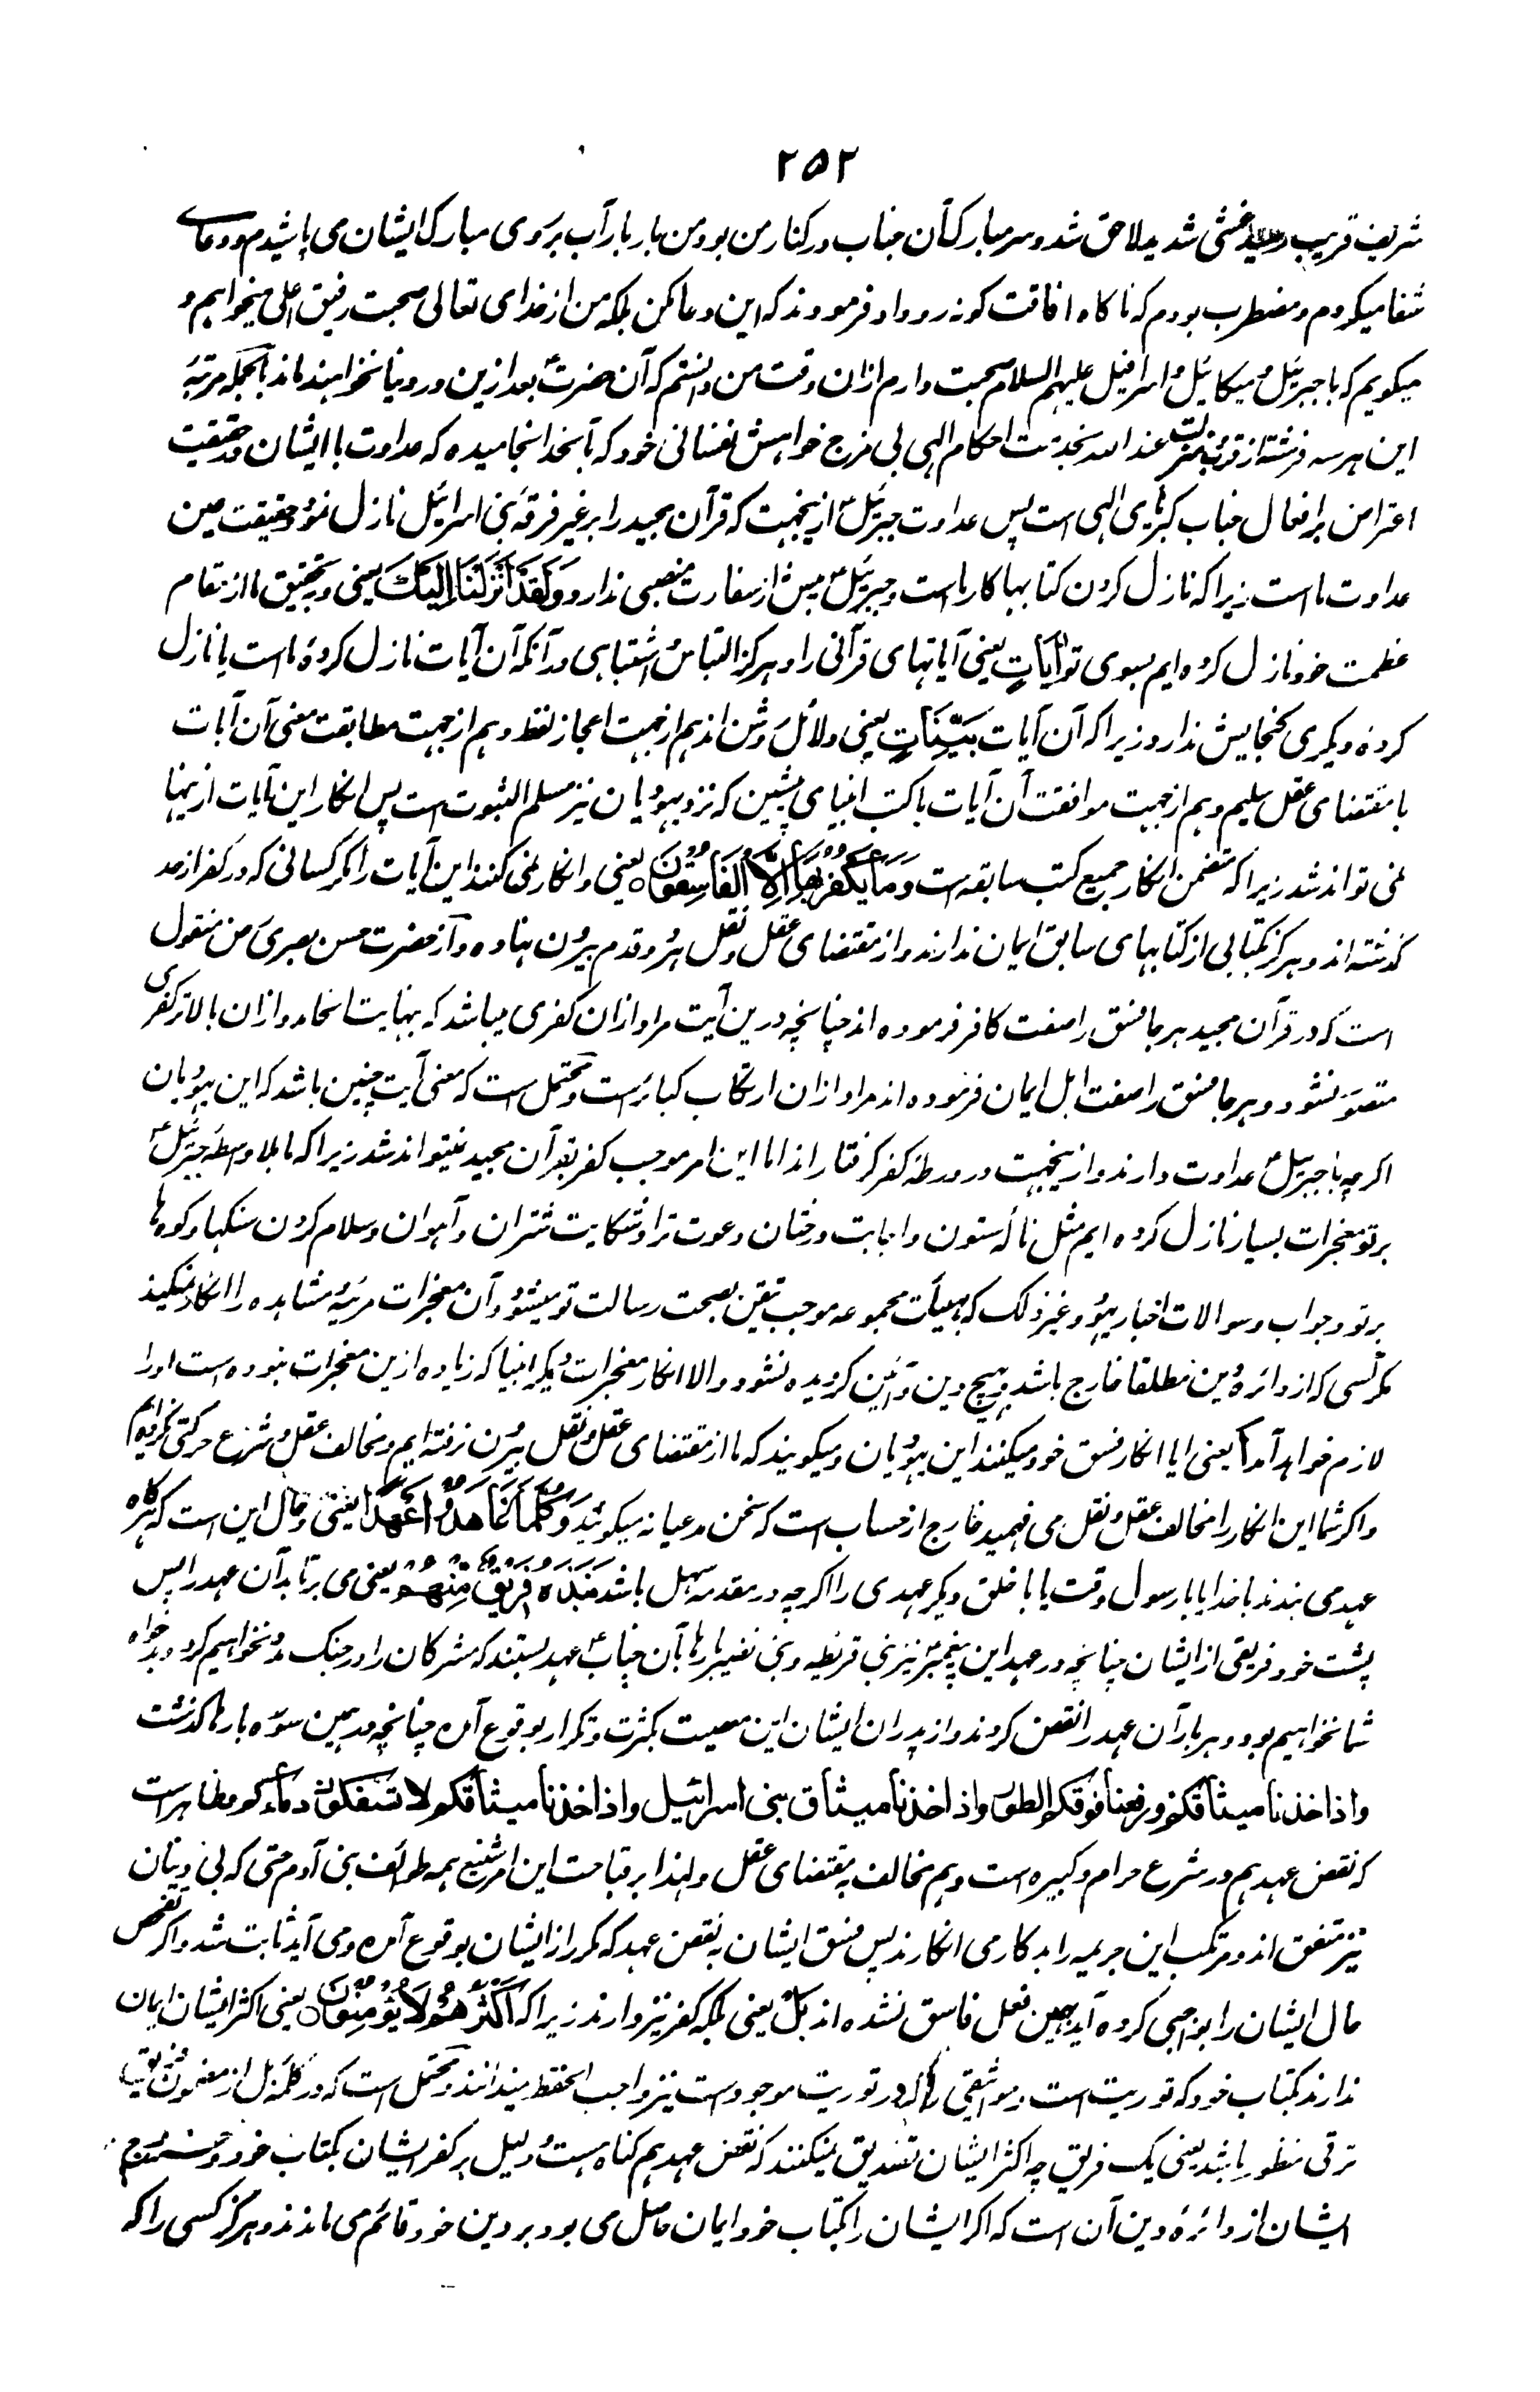 ۲۵۲
شریف قریب رسید غشی شدید لاحق شد و سر مبارک آن جناب در کنار من بود من بار بار آب بر روی مبارک ایشان می پاشیدم و دعای
شفا میکردم و مضطرب بودم که ناگاه افاقت گونه رو داد فرمودند که این دعا مکن بلکه من از خدای تعالی صحبت رفیق اعلی میخواهم و
میگویم که با جبرئیل و میکائیل و اسرافیل علیهم السلام صحبت دارم ازان وقت من دانستم که آن حضرت بعد ازین در دنیا نخواهند ماند بالجمله مرتبهٔ
این هر سه فرشته از قرب و منزلت عند الله بخدمت احکام الهی بی مزج خواهش نفسانی خود که بآنحد انجامیده که عداوت با ایشان در حقیقت
اعتراض بر افعال جناب کبریای الهی است پس عداوت جبرئیل ازینجهت که قرآن مجید را بر غیر فرقهٔ بنی اسرائیل نازل نمود در حقیقت عین
عداوت ما است زیرا که نازل کردن کتابها کار ما است و جبرئیل بیش از سفارت منصبی ندارد وَلَقَدْ اَنْزَلْنَا اِلَیْكَ یعنی و بتحقیق ما از مقام
عظمت خود نازل کرده ایم بسوی تو اٰیَاتٍ یعنی آیتهای قرآنی را و هرگز التباس و اشتباهی در آنکه آن آیات نازل کردهٔ ما است یا نازل
کردهٔ دیگری گنجایش ندارد زیرا که آن آیات بَیِّنَاتٍ یعنی دلائل روشن اند هم از جهت اعجاز لفظ و هم از جهت مطابقت معنی آن آیات
با مقتضای عقل سلیم و هم از جهت موافقت آن آیات با کتب انبیای پیشین که نزد یهودیان نیز مسلم الثبوت است پس انکار این آیات ازینها
نمی تواند شد زیرا که متضمن انکار جمیع کتب سابقه است وَمَا یَکْفُرُ بِهَا اِلَّا الْفَاسِقُوْنَ یعنی و انکار نمی کنند این آیات را مگر کسانی که در کفر از حد
گذشته اند و هرگز بکتابی از کتابهای سابق ایمان ندارند و از مقتضای عقل و نقل هر دو قدم بیرون نهاده و از حضرت حسن بصری من منقول
است که در قرآن مجید هر جا فسق را صفت کافر فرموده اند چنانچه درین آیت مراد ازان کفری میباشد که بنهایت انجامد و ازان بالاتر کفری
متصور نشود و هر جا فسق را صفت اهل ایمان فرموده اند مراد ازان ارتکاب کبائرست و محتمل است که معنی آیت چنین باشد که این یهودیان
اگرچه با جبرئیل عداوت دارند و ازینجهت در ورطهٔ کفر گرفتار اند اما این امر موجب کفر بقرآن مجید نمیتواند شد زیرا که ما بلا واسطهٔ جبرئیل
بر تو معجزات بسیار نازل کرده ایم مثل نالهٔ ستون و اجابت درختان دعوت ترا و شکایت شتران و آهوان و سلام کردن سنگها و کوه ها
بر تو و جواب سوالات اخبار یهود و غیر ذلک که بهیأت مجموعه موجب یقین بصحت رسالت تو میشود و آن معجزات مرئیهٔ مشاهده را انکار نمیکند
مگر کسی که از دائرهٔ دین مطلقا خارج باشد و بهیچ دین و آئین گرویده نشود و الا انکار معجزات دیگر انبیا که زیاده ازین معجزات نبوده است او را
لازم خواهد آمد اَ یعنی ایا انکار فسق خود میکنند این یهودیان و میگویند که ما از مقتضای عقل و نقل بیرون نرفته ایم و مخالف عقل و شرع حرکتی نکرده ایم
و اگر شما این انکار را مخالف عقل و نقل می فهمید خارج از حساب است که سخن مدعیانه میگوئید وَکُلَّمَا عَاهَدُوْا عَهْدًا یعنی و حال این است که هرگاه
عهد می بندند با خدا یا با رسول وقت یا با خلق دیگر عهدی را اگرچه در مقدمهٔ سهل باشد نَبَذَهٗ فَرِیْقٌ مِنْهُمْ یعنی می برتابد آن عهد را پس
پشت خود فریقی از ایشان چنانچه در عهد این پیغمبر نیز بنی قریظه و بنی نضیر بارها بآن جناب عهد بستند که مشرکان را در جنگ مدد نخواهیم کرد و بدخواه
شما نخواهیم بود و هر بار آن عهد را نقض کردند و از پدران ایشان این معصیت بکثرت و تکرار بوقوع آمده چنانچه در همین سوره بارها گذشت
و اذ اخذنا میثاقکم و رفعنا فوقکم الطور و اذ اخذنا میثاق بنی اسرائیل و اذ اخذنا میثاقکم لا تسفکون دماءکم و ظاهر است
که نقض عهد هم در شرع حرام و کبیره است و هم مخالف مقتضای عقل و لهذا بر قباحت این امر شنیع همه طوائف بنی آدم حتی که بی دینان
نیز متفق اند و مرتکب این جریمه را بد کار می انگارند پس فسق ایشان به نقض عهد که مکرر از ایشان بوقوع آمده و می آید ثابت شد و اگر تفحص
حال ایشان را بواجبی کرده آید بهمین فعل فاسق نشده اند بَلْ یعنی بلکه کفر نیز دارند زیرا که اَکْثَرُهُمْ لَا یُؤْمِنُوْنَ یعنی اکثر ایشان ایمان
ندارند بکتاب خود که توریت است و مواثیقی را که در توریت موجود است نیز واجب الحفظ نمیدانند و محتمل است که در کلمهٔ بل از مضمون فریق
ترقی منظور باشد یعنی یک فریق چه اکثر ایشان تصدیق نمیکنند که نقض عهد هم گناه هست و دلیل بر کفر ایشان بکتاب خود و خروج
ایشان از دائرهٔ دین آن است که اگر ایشان را بکتاب خود ایمان حاصل می بود بر دین خود قائم می ماندند و هرگز کسی را که